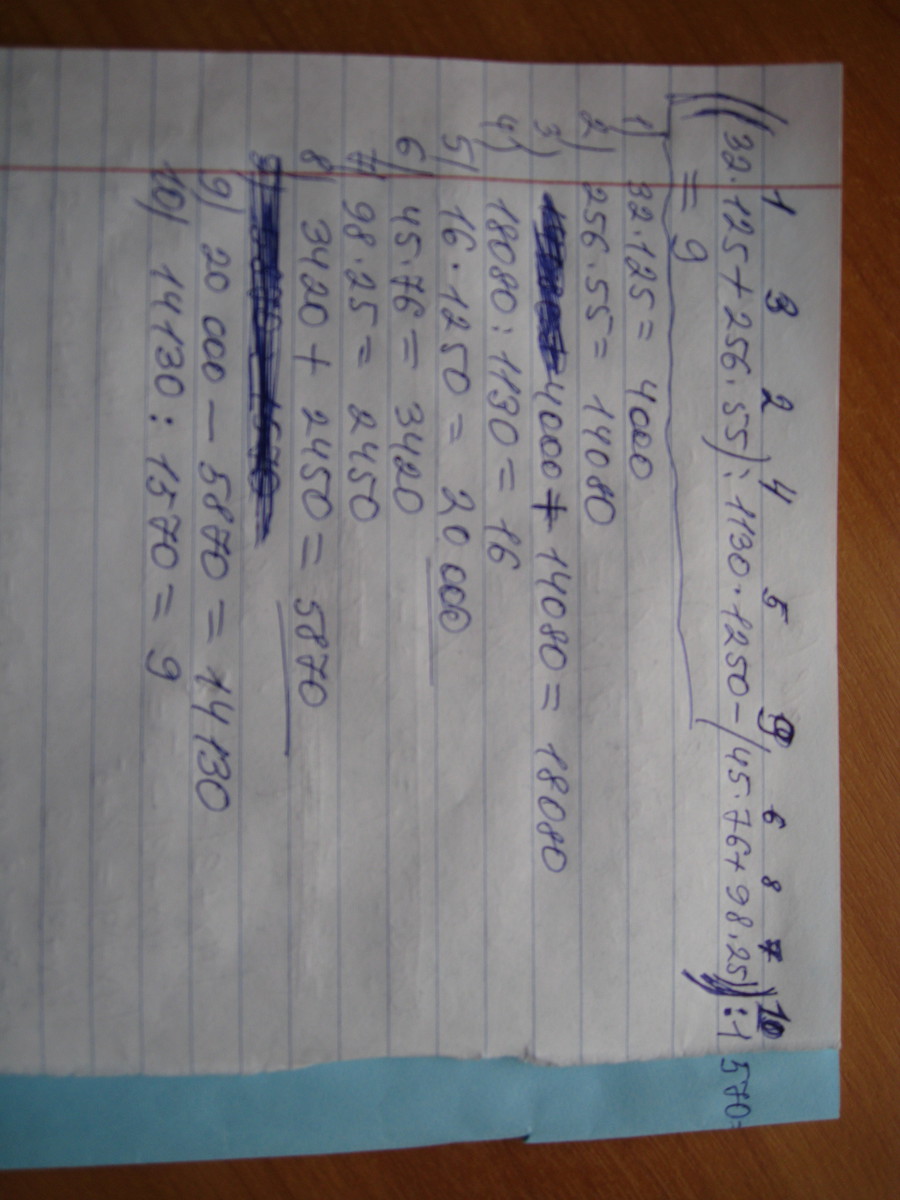 1 3 2 4 5 9 6 8 7 10
((32·125+256·55):1130·1250-(45·76+98·25)):1570=
= 9
1) 32·125= 4000
2) 256·55= 14080
3) 4000+ 14080= 18080
4) 18080:1130=16
5) 16·1250= 20000
6) 45·76= 3420
7) 98·25= 2450
8) 3420+ 2450= 5870
9) 20 000 - 5870= 14130
10) 14130:1570= 9